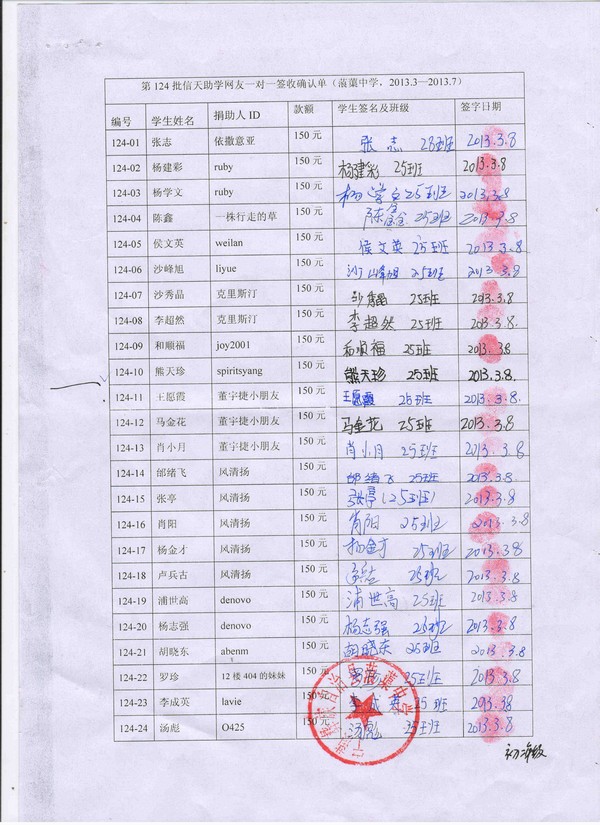 第 124 批信天助学网友一对一签收确认单（蒗蕖中学，2013.3—2013.7）
编号 学生姓名 捐助人 ID 款额 学生签名及班级 签字日期
124-01 张志 依撒意亚 150 元 张志 25班 2013.3.8
124-02 杨建彩 ruby 150 元 杨建彩 25班 2013.3.8
124-03 杨学文 ruby 150 元 杨学文 25班 2013.3.8
124-04 陈鑫 一株行走的草 150 元 陈鑫 25班 2013.3.8
124-05 侯文英 weilan 150 元 侯文英 25班 2013.3.8
124-06 沙峰旭 liyue 150 元 沙峰旭 25班 2013.3.8
124-07 沙秀晶 克里斯汀 150 元 沙秀晶 25班 2013.3.8
124-08 李超然 克里斯汀 150 元 李超然 25班 2013.3.8.
124-09 和顺福 joy2001 150 元 和顺福 25班 2013.3.8
124-10 熊天珍 spiritsyang 150 元 熊天珍 25班 2013.3.8.
124-11 王愿霞 董宇捷小朋友 150 元 王愿霞 25班 2013.3.8
124-12 马金花 董宇捷小朋友 150 元 马金花 25班 2013.3.8
124-13 肖小月 董宇捷小朋友 150 元 肖小月 25班 2013.3.8
124-14 邰绪飞 风清扬 150 元 邰绪飞 25班 2013.3.8
124-15 张亭 风清扬 150 元 张亭（25班） 2013.3.8
124-16 肖阳 风清扬 150 元 肖阳 25班 2013.3.8
124-17 杨金才 风清扬 150 元 杨金才 25班 2013.3.8
124-18 卢兵古 风清扬 150 元 25班 2013.3.8
124-19 浦世高 denovo 150 元 浦世高 25班 2013.3.8
124-20 杨志强 denovo 150 元 杨志强 25班 2013.3.8
124-21 胡晓东 abenm 150 元 胡晓东 25班 2013.3.8
124-22 罗珍 12 楼 404 的妹妹 150 元 25班 2013.3.8
124-23 李成英 lavie 150 元 25班 2013.3.8
124-24 汤彪 O425 150 元 汤彪 25班 2013.3.8